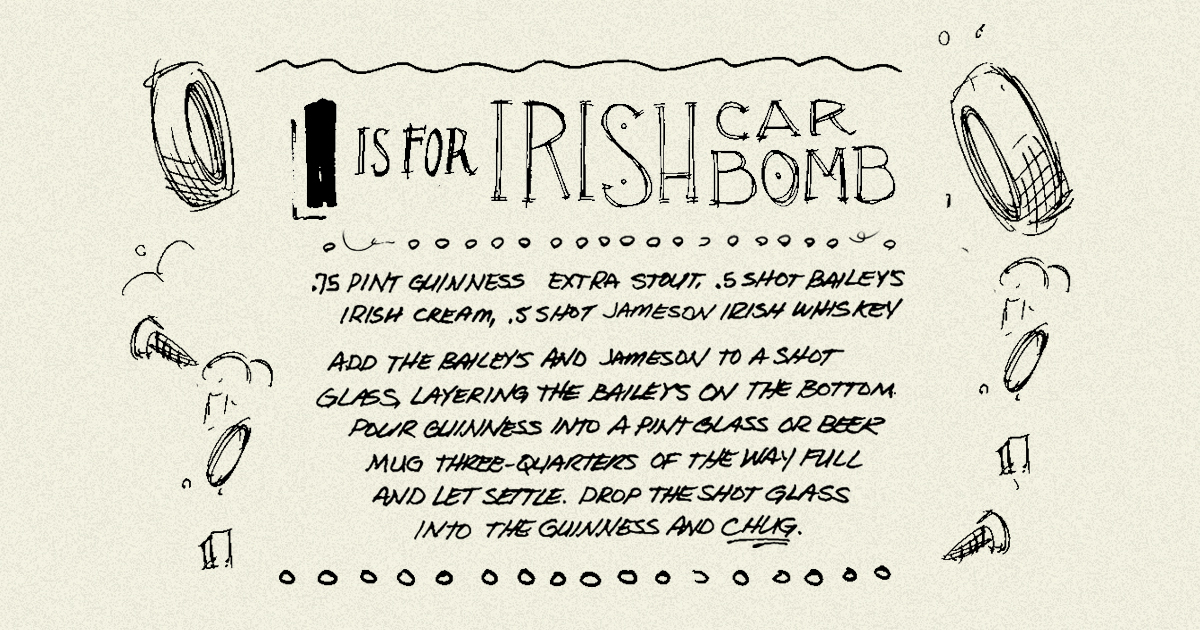 I IS FOR IRISH CAR BOMB
.75 PINT GUINNESS EXTRA STOUT, .5 SHOT BAILEY'S
IRISH CREAM, .5 SHOT JAMESON IRISH WHISKEY
ADD THE BAILEY'S AND JAMESON TO A SHOT
GLASS, LAYERING THE BAILEY'S ON THE BOTTOM.
POUR GUINNESS INTO A PINT GLASS OR BEER
MUG THREE-QUARTERS OF THE WAY FULL
AND LET SETTLE. DROP THE SHOT GLASS
INTO THE GUINNESS AND CHUG.